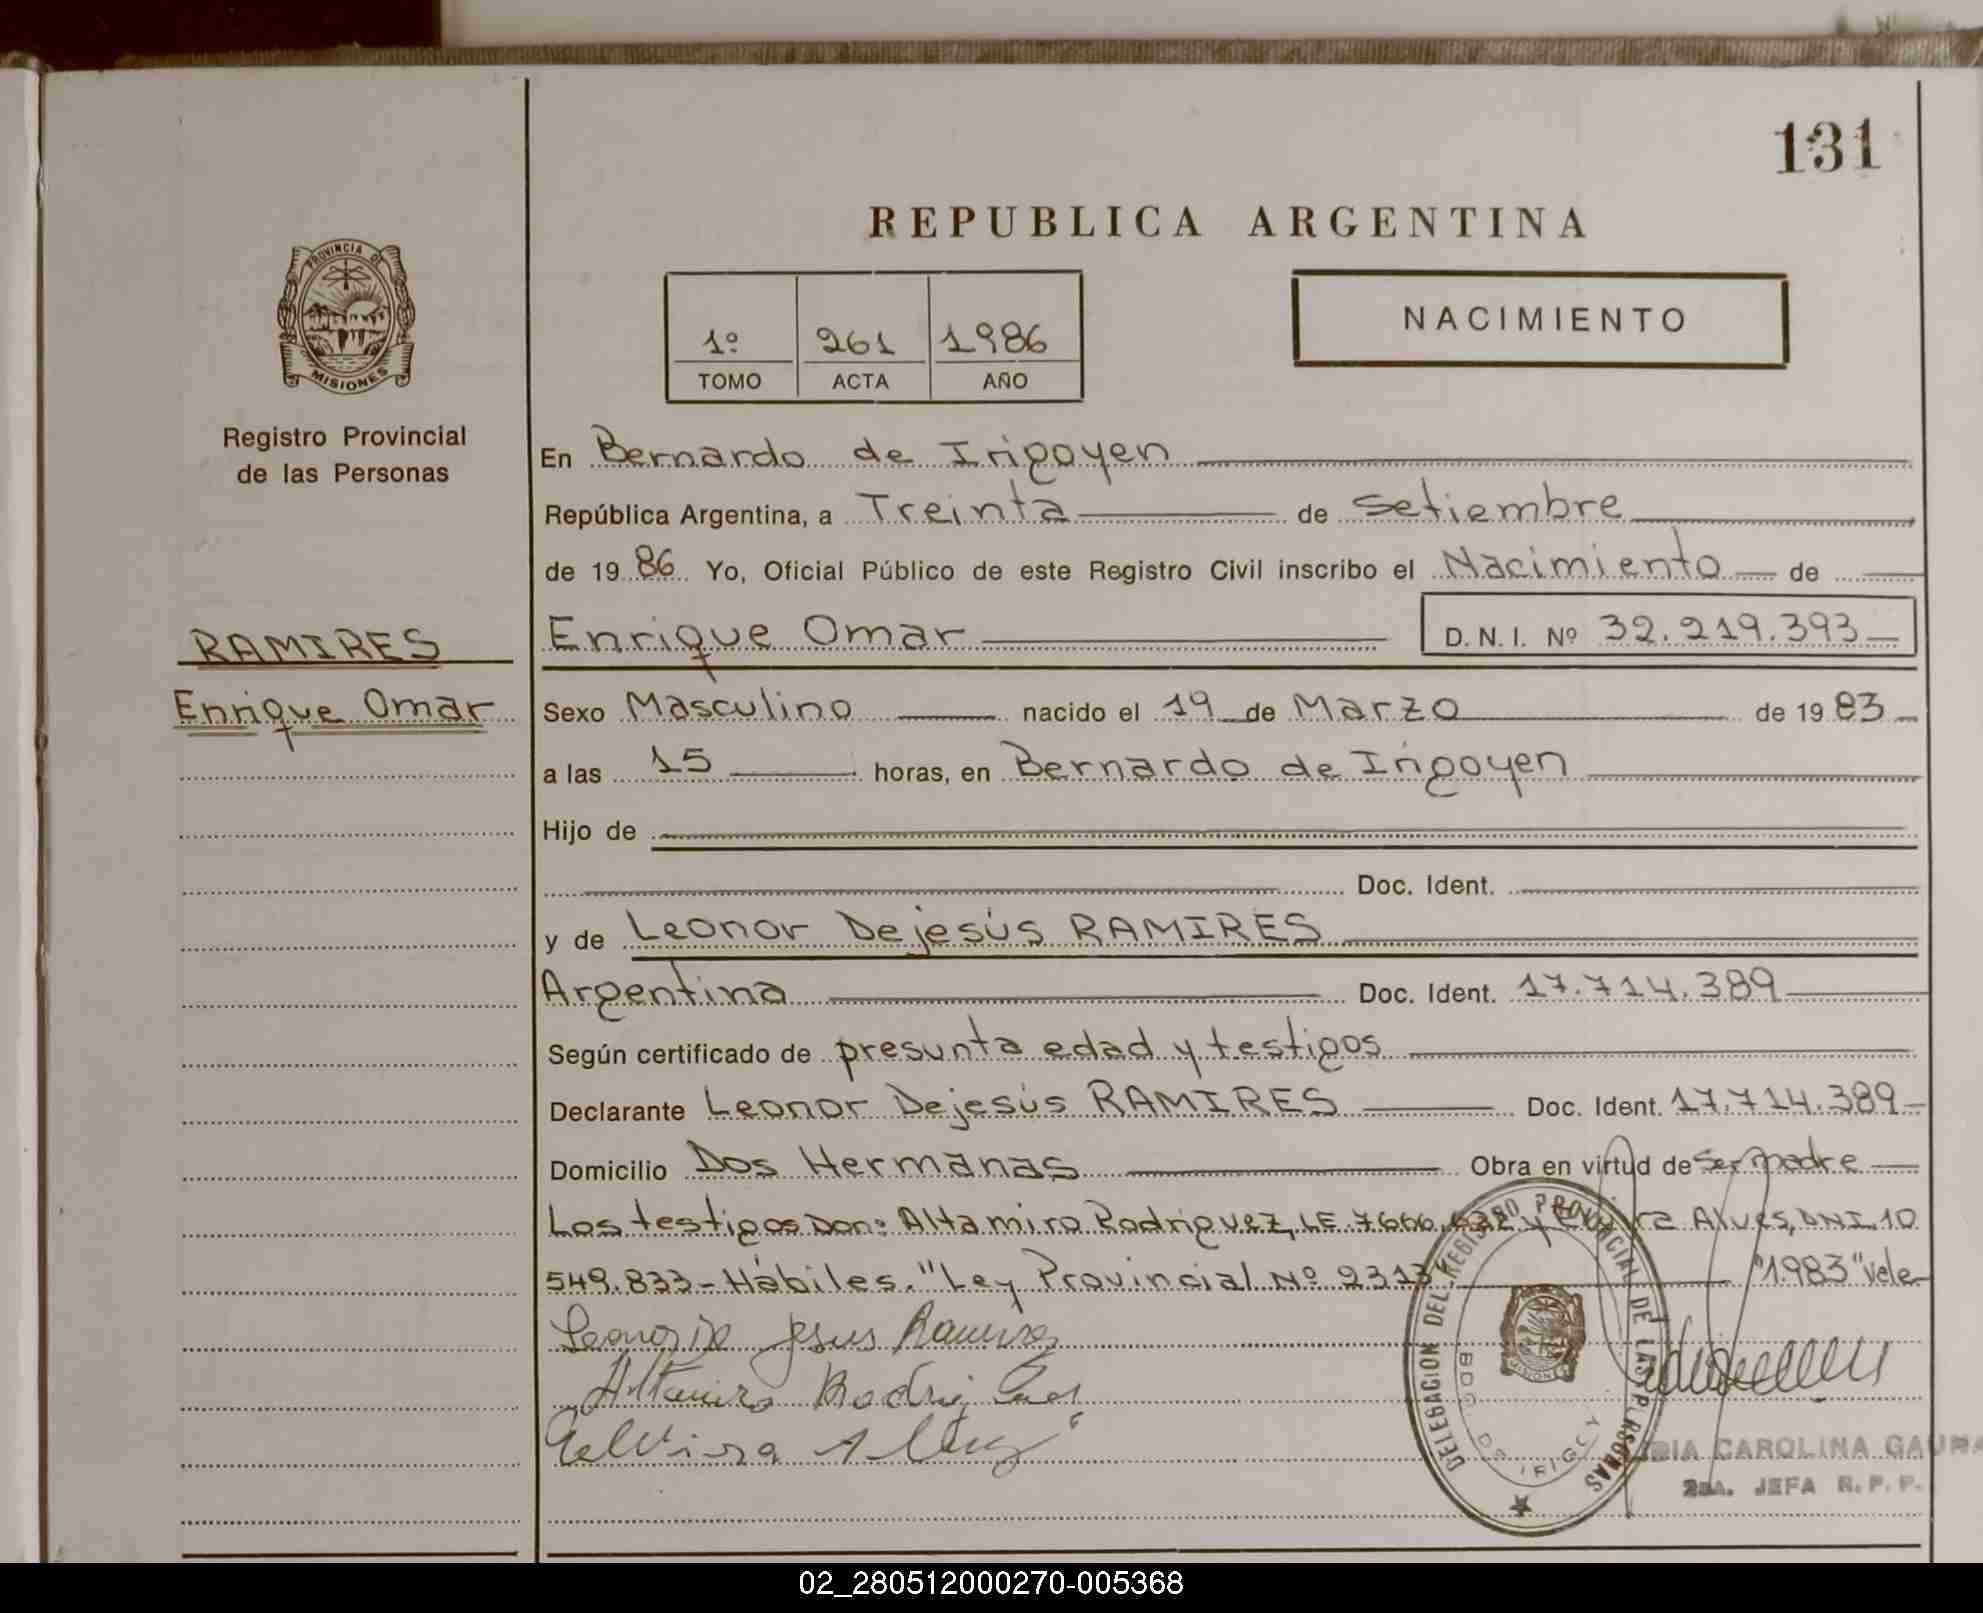 131
REPUBLICA ARGENTINA
PROVINCIA DE
MISIONES
Registro Provincial
de las Personas
1º 261 1986
TOMO ACTA AÑO
NACIMIENTO
En Bernardo de Irigoyen
República Argentina, a Treinta de Setiembre
de 1986 Yo, Oficial Público de este Registro Civil inscribo el Nacimiento de
RAMIRES
Enrique Omar
Enrique Omar D.N.I. Nº 32.219.393
Sexo Masculino nacido el 19 de Marzo de 1983
a las 15 horas, en Bernardo de Irigoyen
Hijo de
Doc. Ident.
y de Leonor Dejesús RAMIRES
Argentina Doc. Ident. 17.714.389
Según certificado de presunta edad y testigos
Declarante Leonor Dejesús RAMIRES Doc. Ident. 17.714.389
Domicilio Dos Hermanas Obra en virtud de ser madre
Los testigos Don: Altamiro Rodriguez, LE 7666, y Alves, DNI 10
549.833 - Hábiles. "Ley Provincial Nº 2313" "1.983" Vele
Jesus Ramires
Altamiro
DELEGACION DEL REGISTRO PROVINCIAL DE LAS PERSONAS
BDO. DE IRIGOY
CAROLINA GAUNA
2DA. JEFA R.P.P.
02_280512000270-005368